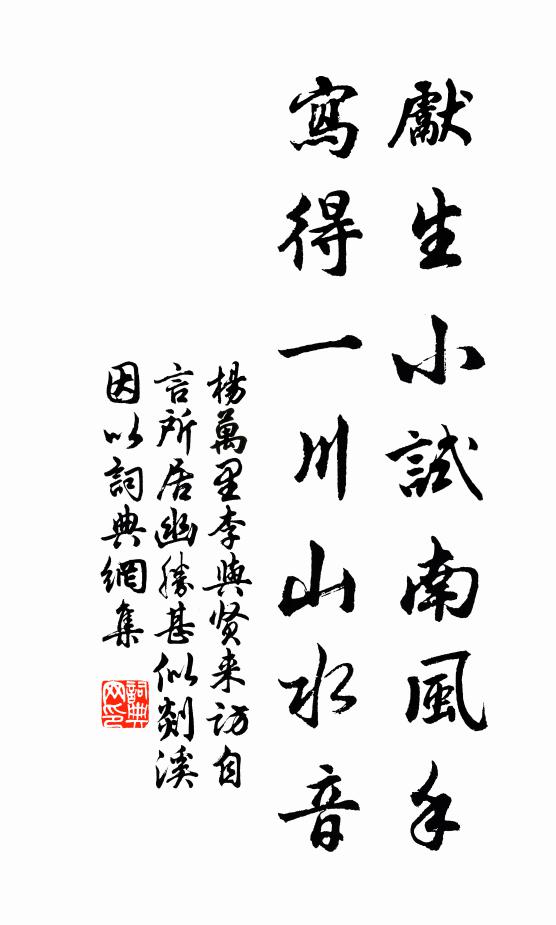 獻生小試南風手
寫得一川山水音
楊萬里李與賢来訪自
言所居幽勝甚似剡溪
因以詞典網集
詞典
网印